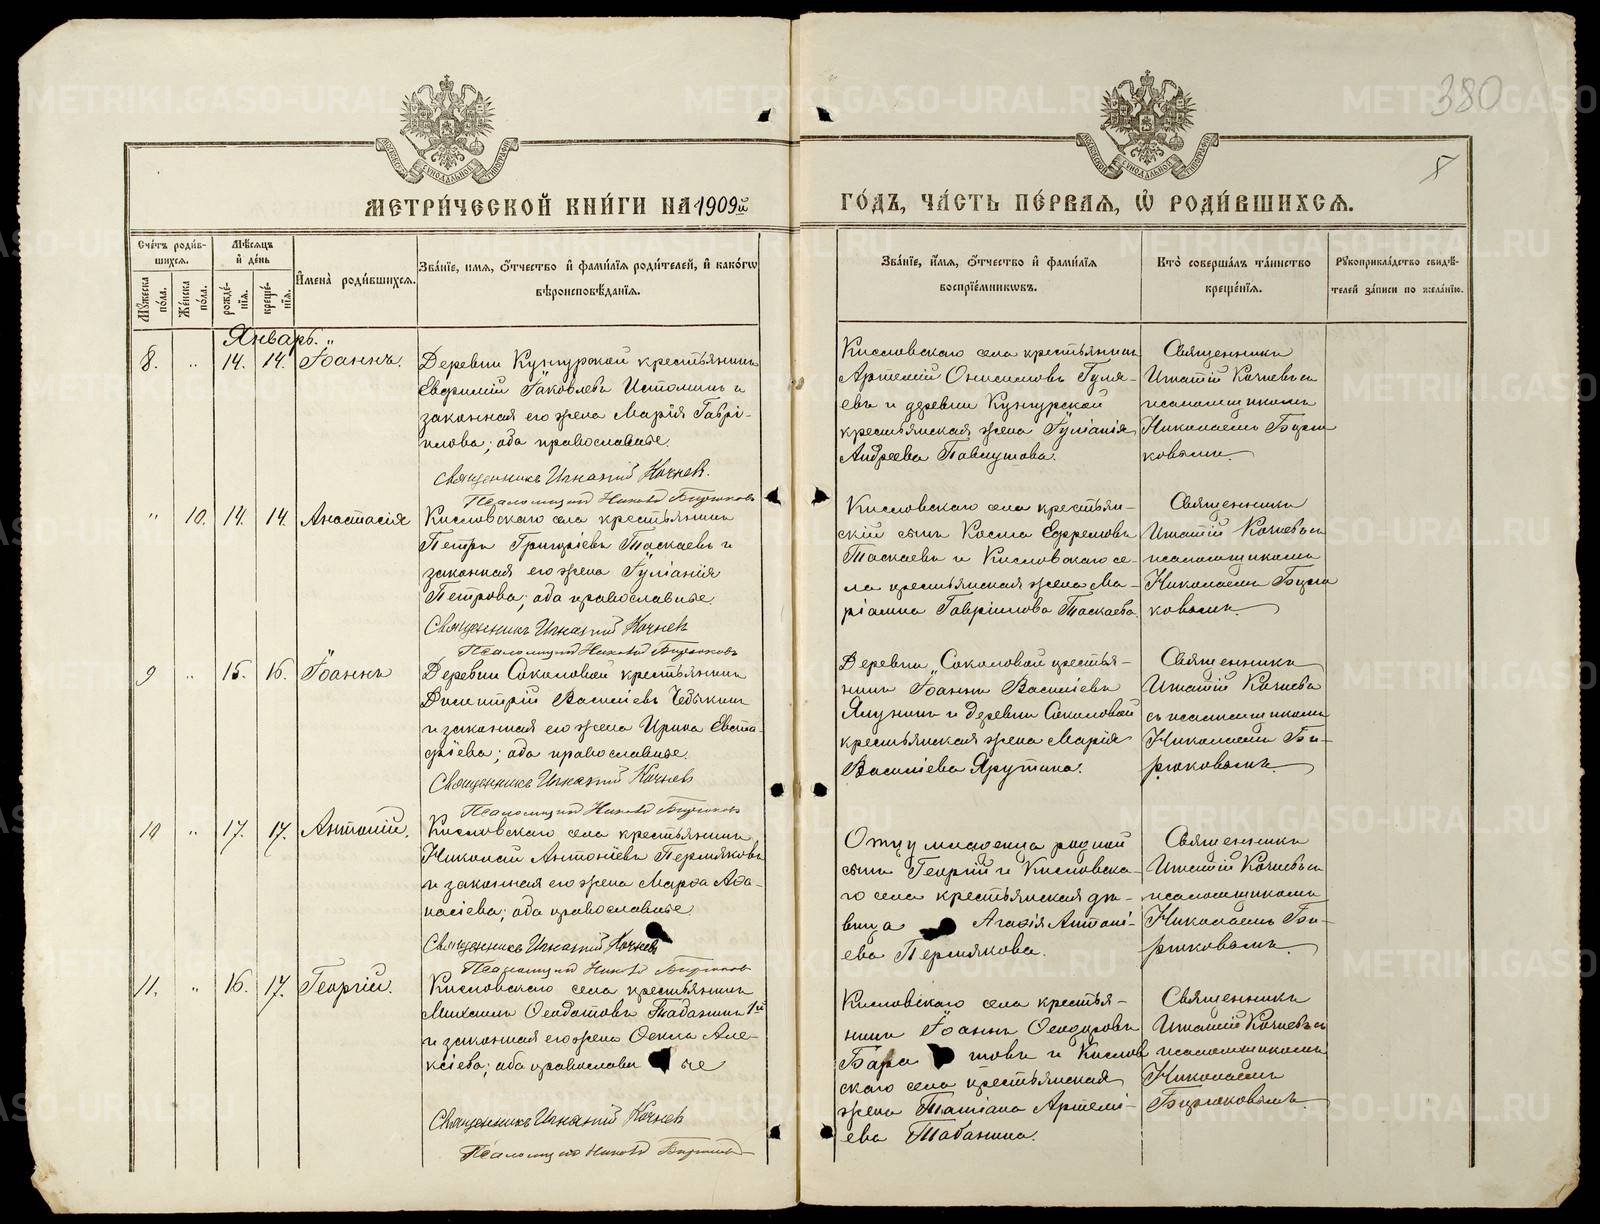 380
5
МЕТРИ́ЧЕСКОЙ КНИ́ГИ НА 1909й
ГО́ДЪ, ЧА́СТЬ ПЕ́РВАЯ, Ѡ РОДИ́ВШИХСЯ.
Сче́тъ роди́в-
шихся.
Мꙋ́жеска по́ла.
Же́нска по́ла.
Мѣ́сяцъ и де́нь
рожде́-нїя.
креще́-нїя.
Имена̀ роди́вшихся.
Зва́нїе, и́мя, о́тчество и фами́лїя роди́телей, и како́гѡ
вѣроисповѣ́данїя.
Зва́нїе, и́мя, о́тчество и фами́лїя
воспрїе́мникѡвъ.
Кто̀ соверша́лъ та́инство
креще́нїя.
Рꙋкоприкла́дство свидѣ́-
телей за́писи по жела́нїю.
Январь.
8. " 14. 14. Іоаннъ.
Деревни Кунгурской крестьянинъ
Евфимій Іаковлевъ Истоминъ и
законная его жена Марія Гаврі-
илова; оба православные.
Священникъ Игнатій Кочневъ.
Псаломщикъ Николай Бирюковъ
Кисловскаго села крестьянинъ
Артемій Онисимовъ Гуля-
евъ и деревни Кунгурской
крестьянская жена Іуліанія
Андреева
Священникъ
Игнатій Кочневъ съ
псаломщикомъ
Николаемъ Бирю
ковымъ.
" 10. 14. 14. Анастасія
Кисловскаго села крестьянинъ
Петръ Григоріевъ Таскаевъ и
законная его жена Іуліанія
Петрова; оба православные.
Священникъ Игнатій Кочневъ
Псаломщикъ Николай Бирюковъ
Кисловскаго села крестьян-
скій сынъ Косма Ефремовъ
Таскаевъ и Кисловскаго се-
ла крестьянская жена Ма-
ріамна Гавріилова Таскаева.
Священникъ
Игнатій Кочневъ съ
псаломщикомъ
Николаемъ Бирю
ковымъ.
9 " 15. 16. Іоаннъ
Деревни Соколовой крестьянинъ
Димитрій Василіевъ Чебыкинъ
и законная его жена Ирина Евста-
фіева; оба православные.
Священникъ Игнатій Кочневъ
Псаломщикъ Николай Бирюковъ
Деревни Соколовой крестья-
нинъ Іоаннъ Василіевъ
Ялунинъ и деревни Соколовой
крестьянская жена Марія
Василіева Ярутина.
Священникъ
Игнатій Кочневъ
съ псаломщикомъ
Николаемъ Би-
рюковымъ.
10 " 17. 17. Антоній.
Кисловскаго села крестьянинъ
Николай Антоніевъ Пермяковъ
и законная его жена Марфа Афа-
насіева; оба православные
Священникъ Игнатій Кочневъ
Псаломщикъ Николай Бирюковъ
Отцу младенца родной
сынъ Георгій и Кисловска-
го села крестьянская дѣ-
вица Агафія Антоні-
ева Пермякова.
Священникъ
Игнатій Кочневъ съ
псаломщикомъ
Николаемъ Би-
рюковымъ.
11. " 16. 17. Георгій.
Кисловскаго села крестьянинъ
Михаилъ Феодотовъ Табанинъ 1й
и законная его жена Фекла Але-
ксіева; оба православн ые
Священникъ Игнатій Кочневъ
Псаломщикъ Николай Бирюковъ
Кисловскаго села крестья-
нинъ Іоаннъ Феодоровъ
Бара товъ и Кислов
скаго села крестьянская
жена Татіана Артемі-
ева Табанина.
Священникъ
Игнатій Кочневъ съ
псаломщикомъ
Николаемъ
Бирюковымъ.
METRIKI.GASO-URAL.RU